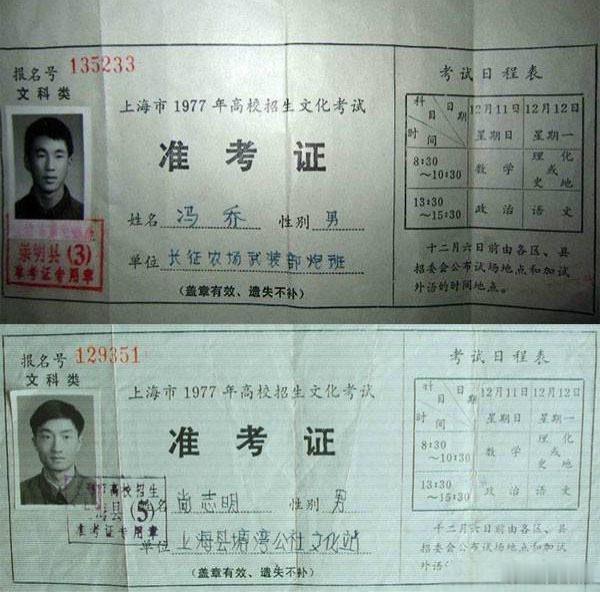 报名号 135233
文科类
上海市1977年高校招生文化考试
准考证
姓名 冯乔 性别 男
单位 长征农场武装部炮班
(盖章有效、遗失不补)
崇明县(3)
准考证专用章
考试日程表
科目 日期 时间 12月11日 12月12日
星期日 星期一
8:30～10:30 数学 理化或史地
13:30～15:30 政治 语文
十二月六日前由各区、县
招委会公布试场地点和加试
外语的时间地点。
报名号 129351
文科类
上海市1977年高校招生文化考试
准考证
姓名 尚志明 性别 男
单位 上海县塘湾公社文化站
(盖章有效、遗失不补)
高校招生
海县(5)
准考证专用章
考试日程表
科目 日期 时间 12月11日 12月12日
星期日 星期一
8:30～10:30 数学 理化或史地
13:30～15:30 政治 语文
十二月六日前由各区、县
招委会公布试场地点和加试
外语